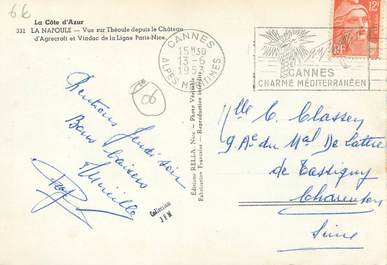 66
La Côte d'Azur
331 LA NAPOULE — Vue sur Théoule depuis le Château
d'Agecroft et Viaduc de la Ligne Paris-Nice.
CANNES
15H30
13-6
195
ALPES MARITIMES
CANNES
CHARME MÉDITERRANÉEN
12F
RF
06
Rentrons Jeudi soir
Bons baisers
Mireille
Editions RELLA, Nice - Photo Véritable
Fabrication Française - Reproduction interdite
Collection
J F M
Mlle C. Classey
9. Av. du Mal De Lattre
de Tassigny
Charenton
Seine